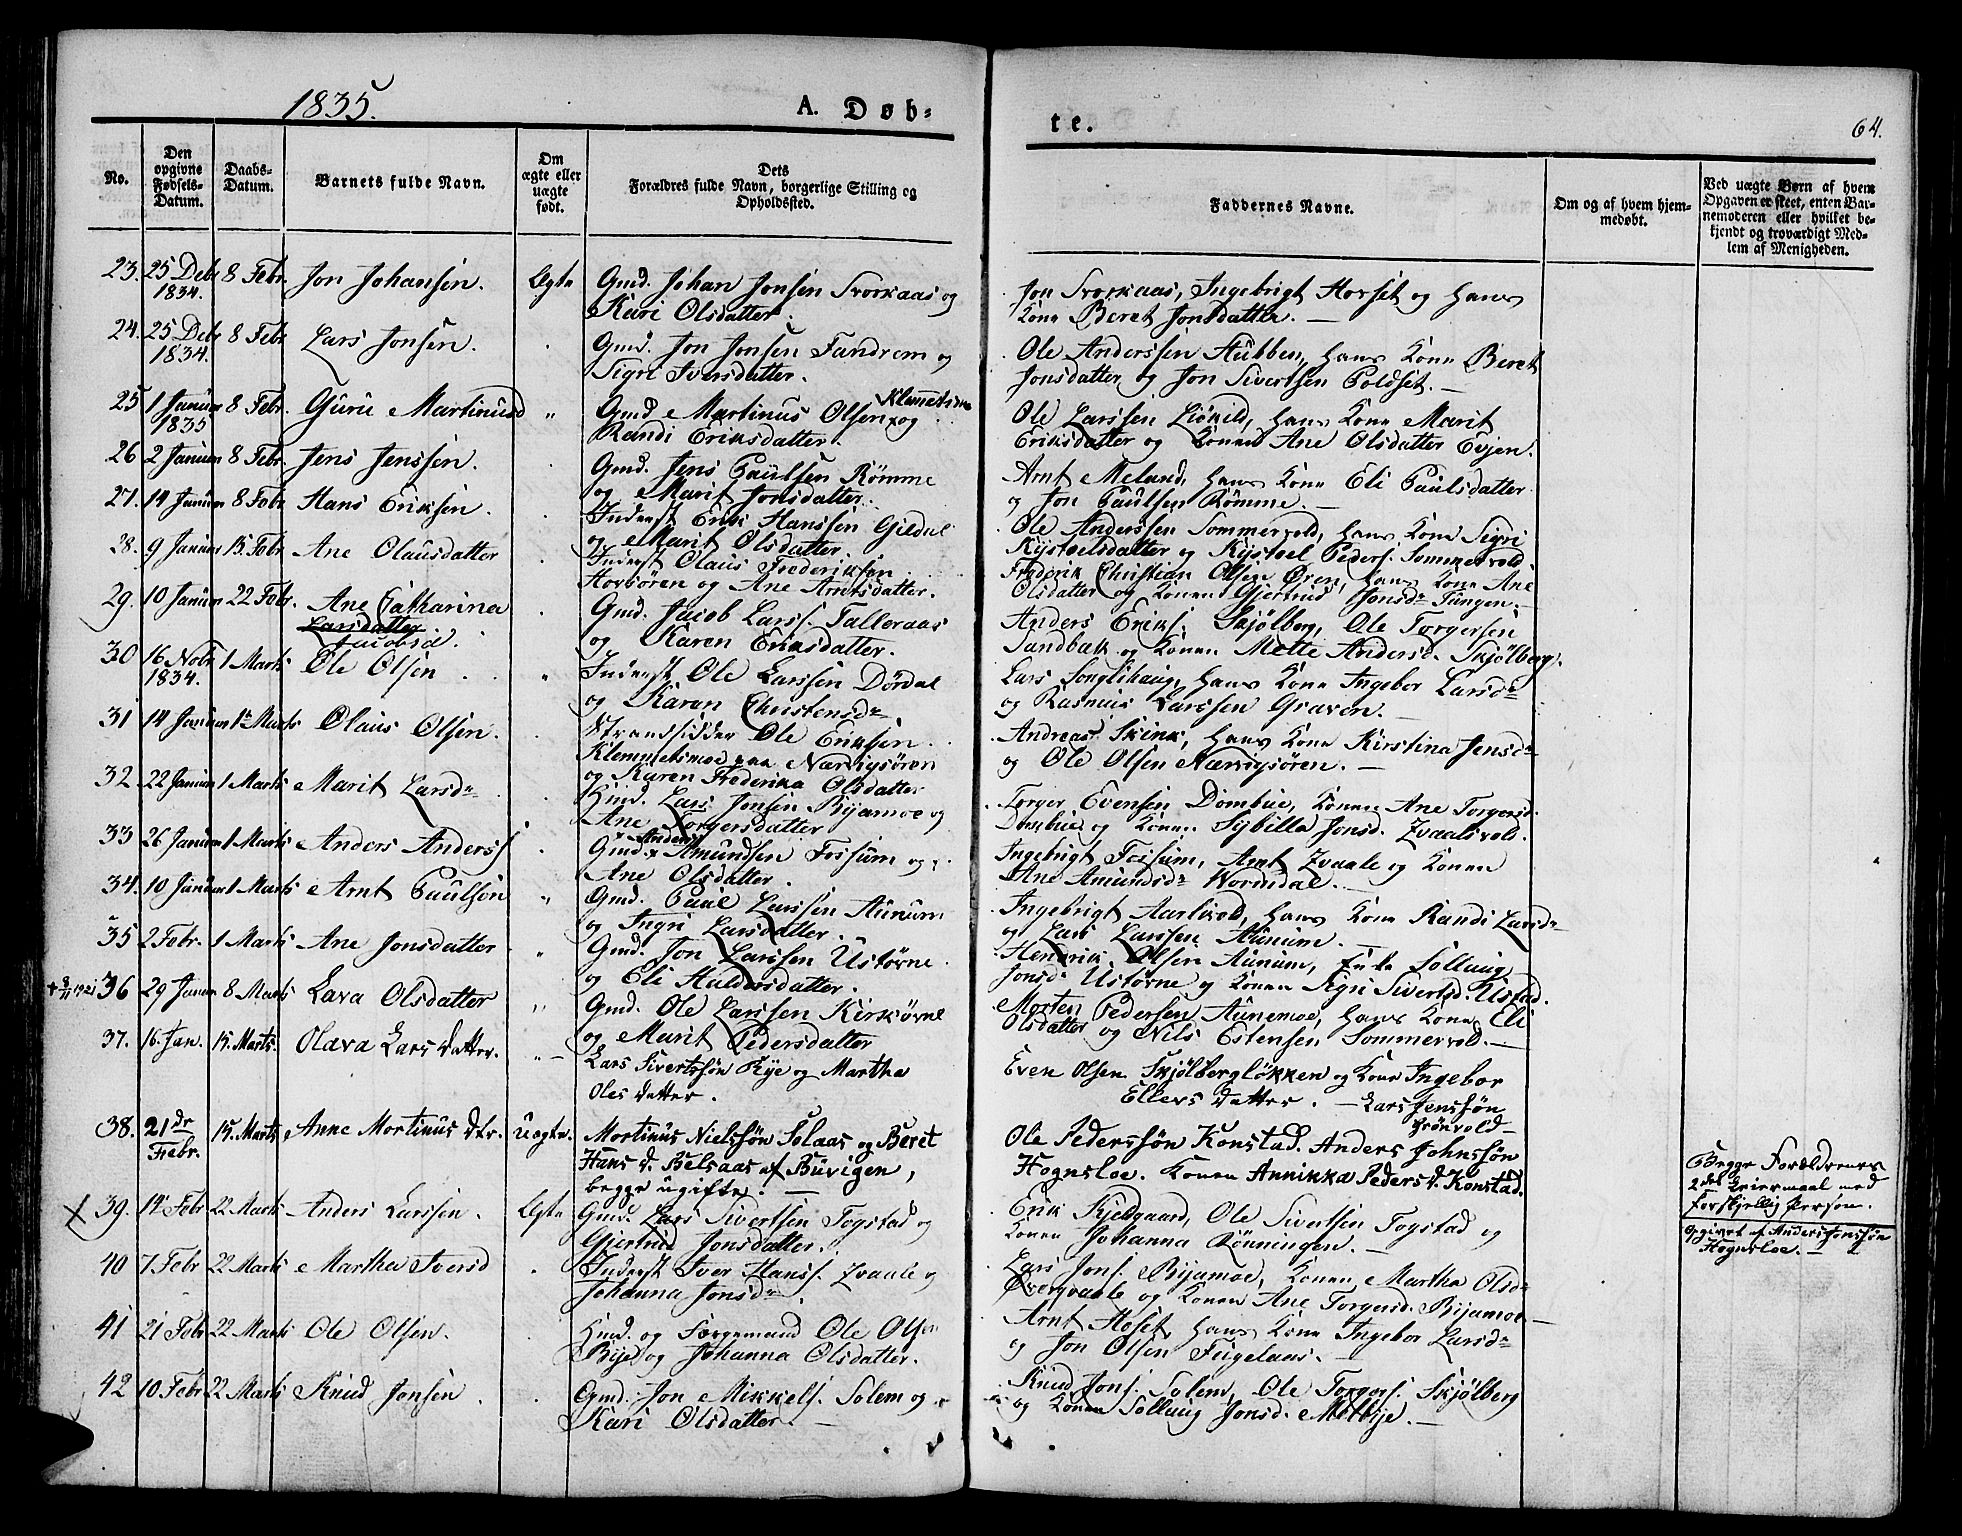 1835.
A. Døb-
te.
64.
No.
Den
opgivne
Fødsels-
Datum.
Daabs-
Datum.
Barnets fulde Navn.
Om
ægte eller
uægte
født.
Dets
Forældres fulde Navn, borgerlige Stilling og
Opholdssted.
Faddernes Navne.
Om og af hvem hjem-
medøbt.
Ved uægte Børn af hvem
Opgaven er skeet, enten Bar-
nemoderen eller hvilket be-
kjendt og troværdigt Med-
lem af Menigheden.
23. 25 Debr 8 Febr. Jon Johansen. Ægte Gmd. Johan Jonsen Svorkaas og
1834. Kari Olsdatter.
Jon Svorkaas, Ingebrigt Hovset og hans
Kone Beret Jonsdatter. —
24. 25 Debr 8 Febr Lars Jonsen. Gmd. Jon Jonsen Fandrem og
1834. Sigri Iversdatter.
Ole Anderssen Hubben, hans Kone Beret
Jonsdatter og Jon Sivertsen Goldset. —
25 1 Januar 8 Febr. Guru Martinusd " Gmd Martinus Olsen Klemetsmo og
1835 Randi Eriksdatter.
Ole Larssen Liökild, hans Kone Marit
Eriksdatter og Konen Ane Olsdatter Evjen.
26 2 Januar 8 Febr. Jens Jenssen. Gmd. Jens Paulsen Römme
og Marit Jonsdatter.
Arnt Melund, hans Kone Eli Paulsdatter
og Jon Paulsen Römme. —
27. 14 Januar 8 Febr. Hans Eriksen. Inderst Erik Hanssen Gildal
og Marit Olsdatter.
Ole Anderssen Sommervold, hans Kone Sigri
Kystoelsdatter og Kystoel Peders. Sommervold.
28. 9 Januar 15. Febr Ane Olausdatter Inderst Olaus Frederiksen
Horbören og Ane Arntsdatter.
Frederik Christian Olsen Ören, hans Kone Ane
Olsdatter og Konen Gjertrud Jonsdr Tungen. —
29. 10 Januar 22 Febr. Ane Catharina Gmd. Jacob Larss. Talleraas
Larsdatter
Jacobsd. og Karen Eriksdatter.
Anders Eriks. Skjölberg, Ole Torgersen
Sandbak og Konen Mette Andersd. Skjölberg.
30 16 Nobr 1 Marts Ole Olsen " Inderst Ole Larssen Dördal
1834. og Karen Christensdr
Lars Songlihaug, hans Kone Ingebor Larsdr
og Rasmus Larssen Graven. —
31 14 Januar 1te Marts Olaus Olsen. Strandsidder Ole Eriksen
Klemmetsmoe paa Nærvigsören
og Karen Frederika Olsdatter
Andreas Skink, hans Kone Kirstina Jensdr
og Ole Olsen Nærvigsören. —
32. 22 Januar 1 Marts Marit Larsdr Huusmd. Lars Jonsen Byamoe og
Ane Torgersdatter
Torger Evensen Dombue, Konen Ane Torgersd.
Dombue og Konen Sybilla Jonsd. Zvaalsvold.
33 26 Januar 1 Marts Anders Anderss Gmd. Anders Amundsen Fossum og
Ane Olsdatter.
Ingebrigt Fossum, Arnt Zvaale og Konen
Ane Amundsdr Wormdal. —
34. 10 Januar 1 Marts Arnt Paulsen " Gmd. Paul Larssen Aunum
og Ingri Larsdatter.
Ingebrigt Aarlivold, hans Kone Randi Larsdr
og Lars Larssen Aunum. —
35 2 Febr. 1 Marts Ane Jonsdatter " Gmd. Jon Larssen Ustörne
og Eli Haldorsdatter.
Hendrik Olsen Aunum, Enke Sollaug
Jonsd. Ustörne og Konen Sigri Sivertsd. Ustad.
+ 3/11 1921 36 29 Januar 8 Marts Lava Olsdatter " Gmd. Ole Larssen Kirkövne
og Marit Pedersdatter
Morten Pedersen Aunemoe, hans Kone Eli
Olsdatter og Nils Estensen Sommervold. —
37. 16. Jan. 15. Marts. Olava Larsdatter. " — Lars Sivertssön Rye og Martha
Olesdatter.
Even Olsen Skjölberglökken og Kone Ingebor
Ellersdatter. — Lars Jenssön
Grönvold —
38. 21de 15. Marts Anne Mortinus dtr. Uægte. Mortinus Nielssön Solaas og Beret
Febr. Hans d. Belsaas af Buvigen,
begge ugifte. —
Ole Pederssön Konstad. Anders Johnssön
Hognsloe. Konen Annikka Peders d. Konstad.
Begge Forældrenes
2det Leiermaal med
forskjellig Person.
Opgivet af Anders Jonssön
Hognsloe. —
X 39. 14 Febr 22 Marts Anders Larssen. Ægte Gmd. Lars Sivertsen Togstad og
Gjertrud Jonsdatter.
Erik Kjeldgaard, Ole Sivertsen Togstad og
Konen Johanna Rönningen. —
40 7 Febr 22 Marts Martha Iversd Inderst Iver Hanss. Zvaale og
Johanna Jonsdr
Lars Jons. Byamoe, Konen Martha Olsdr
Overqvaale og Konen Ane Torgersd. Byamoe —
41 21 Febr 22 Marts Ole Olsen. Huusmd. og Færgemand Ole Olsen
Bye og Johanna Olsdatter.
Arnt Hoset, hans Kone Ingebor Larsdr
og Jon Olsen Fugelaas. —
42 10 Febr 22 Marts Knud Jonsen. Gmd. Jon Mikkels. Solem og
Kari Olsdatter. —
Knud Jons. Solem, Ole Torgers. Skjölberg
og Konen Sollaug Jonsd. Melbye. —